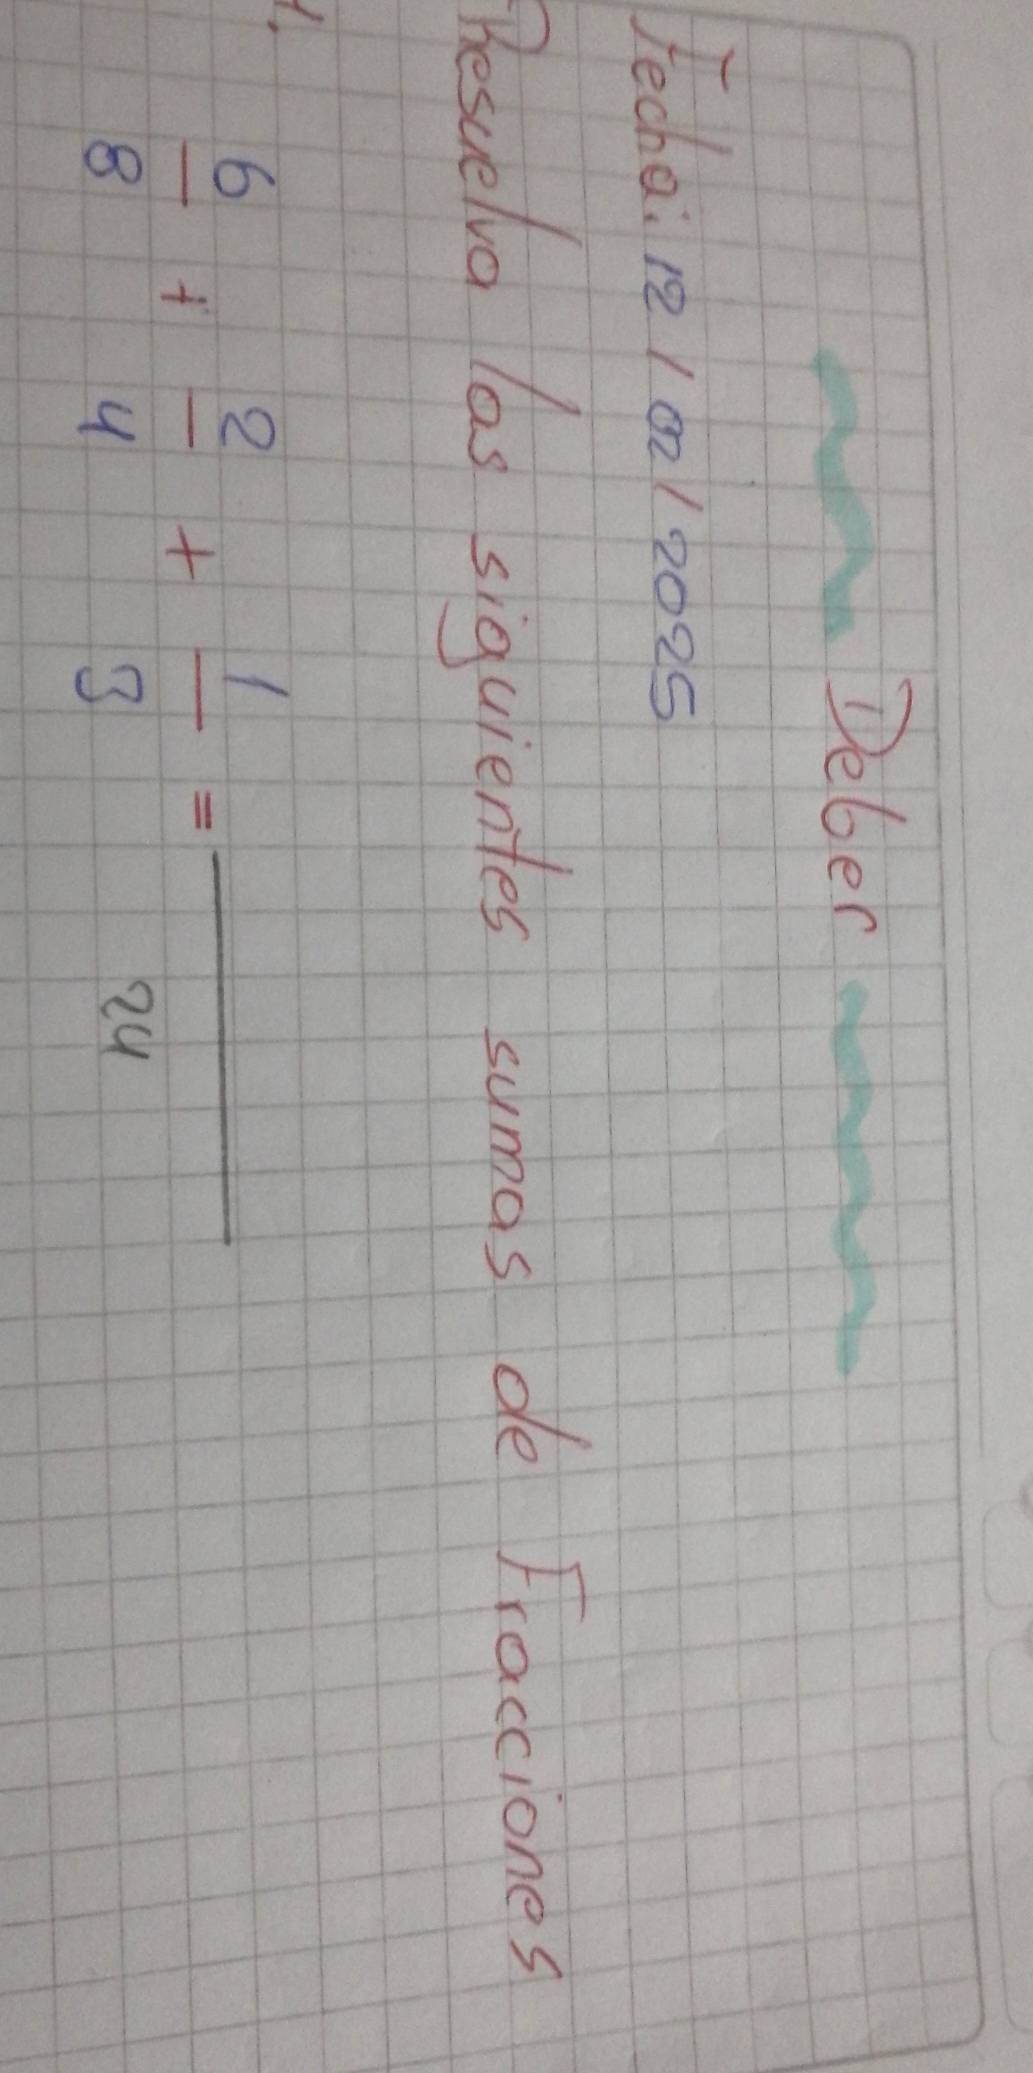 Deber
Fecha: 12 / 02 / 2025
Resuelva las siguientes sumas de Fracciones
1.
6/8 + 2/4 + 1/3 = /24